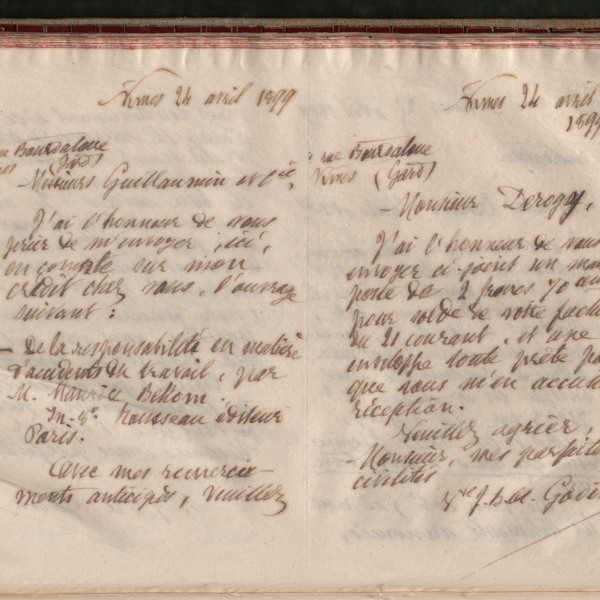 Nimes 24 avril 1899
rue Bourdaloue
(Gard)
Messieurs Guillaumin et Cie,
J'ai l'honneur de vous
prier de m'envoyer, ici,
en compte sur mon
crédit chez vous, l'ouvrage
suivant :
— De la responsabilité en matière
d'accidents du travail, par
M. Maurice Bellom.
In-8°. Rousseau éditeur
Paris.
Avec mes remercie-
ments anticipés, veuillez
Nimes 24 avril
1899
rue Bourdaloue
Nimes (Gard)
Monsieur Derogy,
J'ai l'honneur de vous
envoyer ci-joint un man
poste de 2 francs 70
pour solde de votre factu
du 21 courant, et une
enveloppe toute prête po
que vous m'en accus
réception.
Veuillez agréer,
Monsieur, mes parfaites
civilités
J. B. A. Godin